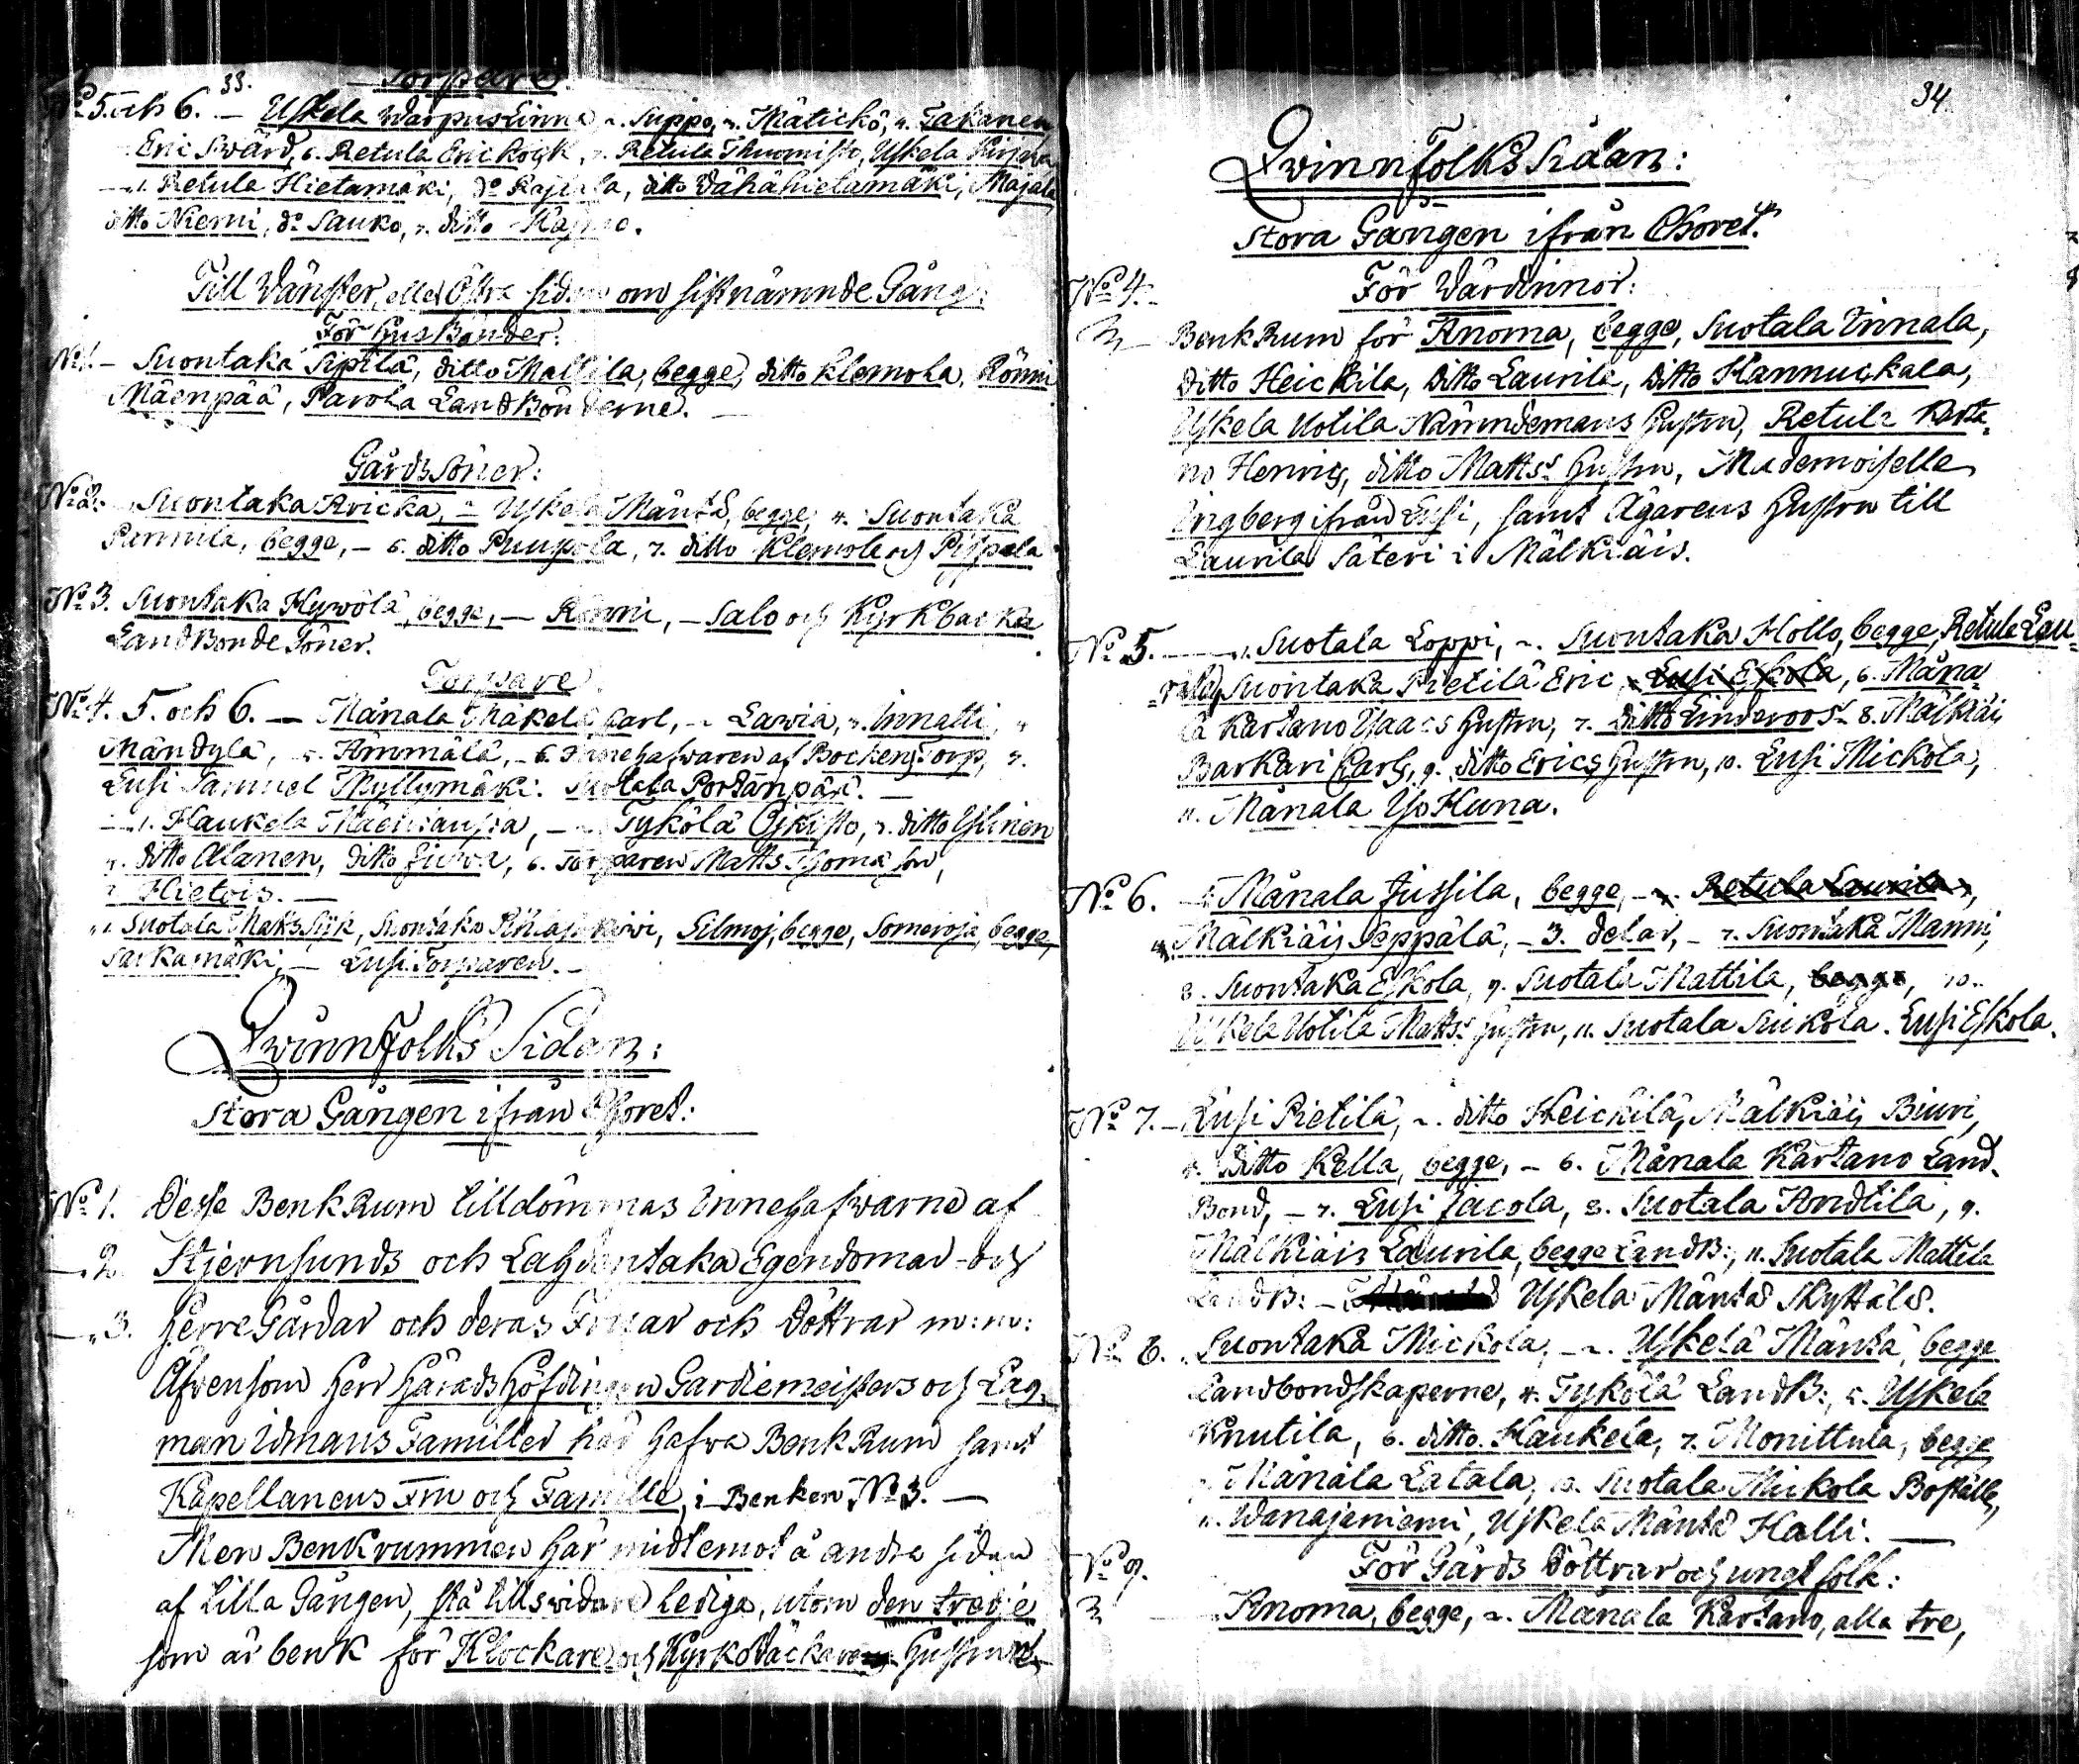 33.
Torpare.
No 5. och 6. — Uskela Warpus Linna 2. Suppo, 3. Mätickö, 4. Takanen,
Eric Swärd, 6. Retula Eric Kock, 7. Retula Thuomisto, Uskela
1. Retula Hietamäki, do Rajala, ditto Wähähietamäki, Majala
ditto Niemi, do Sauko, 7. ditto
Till Wänster, eller Östra sidan om sistnämnde Gång:
För Husbönder:
No 1. — Suontaka Sipilä, ditto Mattila, begge, ditto Klemola, Rönni
Mäenpää, Parola Landbönderne. —
Gårds Söner:
No 2. Suontaka Aricka, — Uskela Mäntä, begge, 4. Suontaka
Punnila, begge, — 6. ditto Puupola, 7. ditto Klemola och Pispala
No 3. Suontaka Hywölä, begge, — Rönni, — Salo och Kyrkbacka
Landbonde Söner.
Torpare
No 4. 5. och 6. — Mänala Mäkelä Carl, 2. Lawia, 3. Innatti,
Mändylä, 5. Ämmälä, — 6. Innehafwaren af Bockens Torp, 7.
Lusi Samuel Myllymäki. Suotala Portanpää. —
1. Haukela — 2. Tykölä Ojkisto, 3. ditto Ylinen
4. ditto Alanen, ditto 6. Torparen Matts Thomasson,
7. Hietois. —
1. Suotala Matts Siik, Suontaka Pihlajakiwi, Silmoj, begge, Someroja, begge,
Sarkamäki, — Lusi Torparen. —
Qvinnfolks Sidan:
Stora Gången ifrån Choret:
No 1. Desse Benk Rum tilldömmas Innehafwarne af
— 2. Stjernsunds och Lahdentaka Egendomar och
— 3. HerreGårdar och deras Fruar och Döttrar m: m:
Äfvensom Herr HäradsHöfdingen Gardiemeisters och Lag-
man Idmans Familler här hafva Benk Rum samt
Kapellanens Fru och Famille, i Benken No 3. —
Men Benkrummen här midtemot å andra sidan
af Lilla Gången, stå tillsvidare lediga, utom den tredje
som är benk för Klockare och Kyrkowäckarens Hustrur
34.
Qvinnfolks Sidan:
Stora Gången ifrån Choret.
No 4. För Wärdinnor:
Benk Rum för Anoma, begge, Suotala Innala,
Ditto Heickilä, Ditto Laurila, Ditto Hannuckala,
Uskela Uotila Nämndemans Hustru, Retula Karta-
no Henrics, ditto Mattss Hustru, Mademoiselle
Ingberg ifrån Lusi, samt Ägarens Hustru till
Laurila Säteri i Mälkiäis.
No 5. — 1. Suotala Loppi, 2. Suontaka Hollo, begge, Retula Lau-
rila, Suontaka Pietilä Eric, Lusi Eskola, 6. Mäna-
la Kartano Isaacs Hustru, 7. Ditto Linderoos 8. Mälkiäis
Barkari Carls, 9. ditto Erics Hustru, 10. Lusi Mickola,
11. Mänala Iso Huna.
No 6. — Mänala Jussila, begge, — Retula Laurila,
4. Mälkiäis Seppälä, — 3. delar, — 7. Suontaka Manni,
8. Suontaka Eskola, 9. Suotala Mattila, begge, 10.
Uskela Uotila Mattss Hustru, 11. Suotala Suikola. Lusi Eskola.
No 7. — Lusi Pietilä, 2. ditto Heickilä, Mälkiäis Biuri,
4. Ditto Kella, begge, — 6. Mänala Kartano Land-
Bond, — 7. Lusi Jacola, 8. Suotala Andtila, 9.
Mälkiäis Laurila, begge LandB:, 11. Suotala Mattila
LandB: — Uskela Mäntä Skyttälä.
No 8. Suontaka Mickola, — 2. Uskela Mäntä, begge
Landbondskaperne, 4. Tykölä LandB:, 5. Uskela
Knutila, 6. ditto Haukela, 7. Monittula, begge
Mänala Latala, 10. Suotala Mickola Boställe,
11. Wanajaniemi, Uskela Mäntä Halli. —
No 9. För Gårds Döttrar och ungt folk:
Anoma, begge, 2. Mänala Kartano, alla tre,